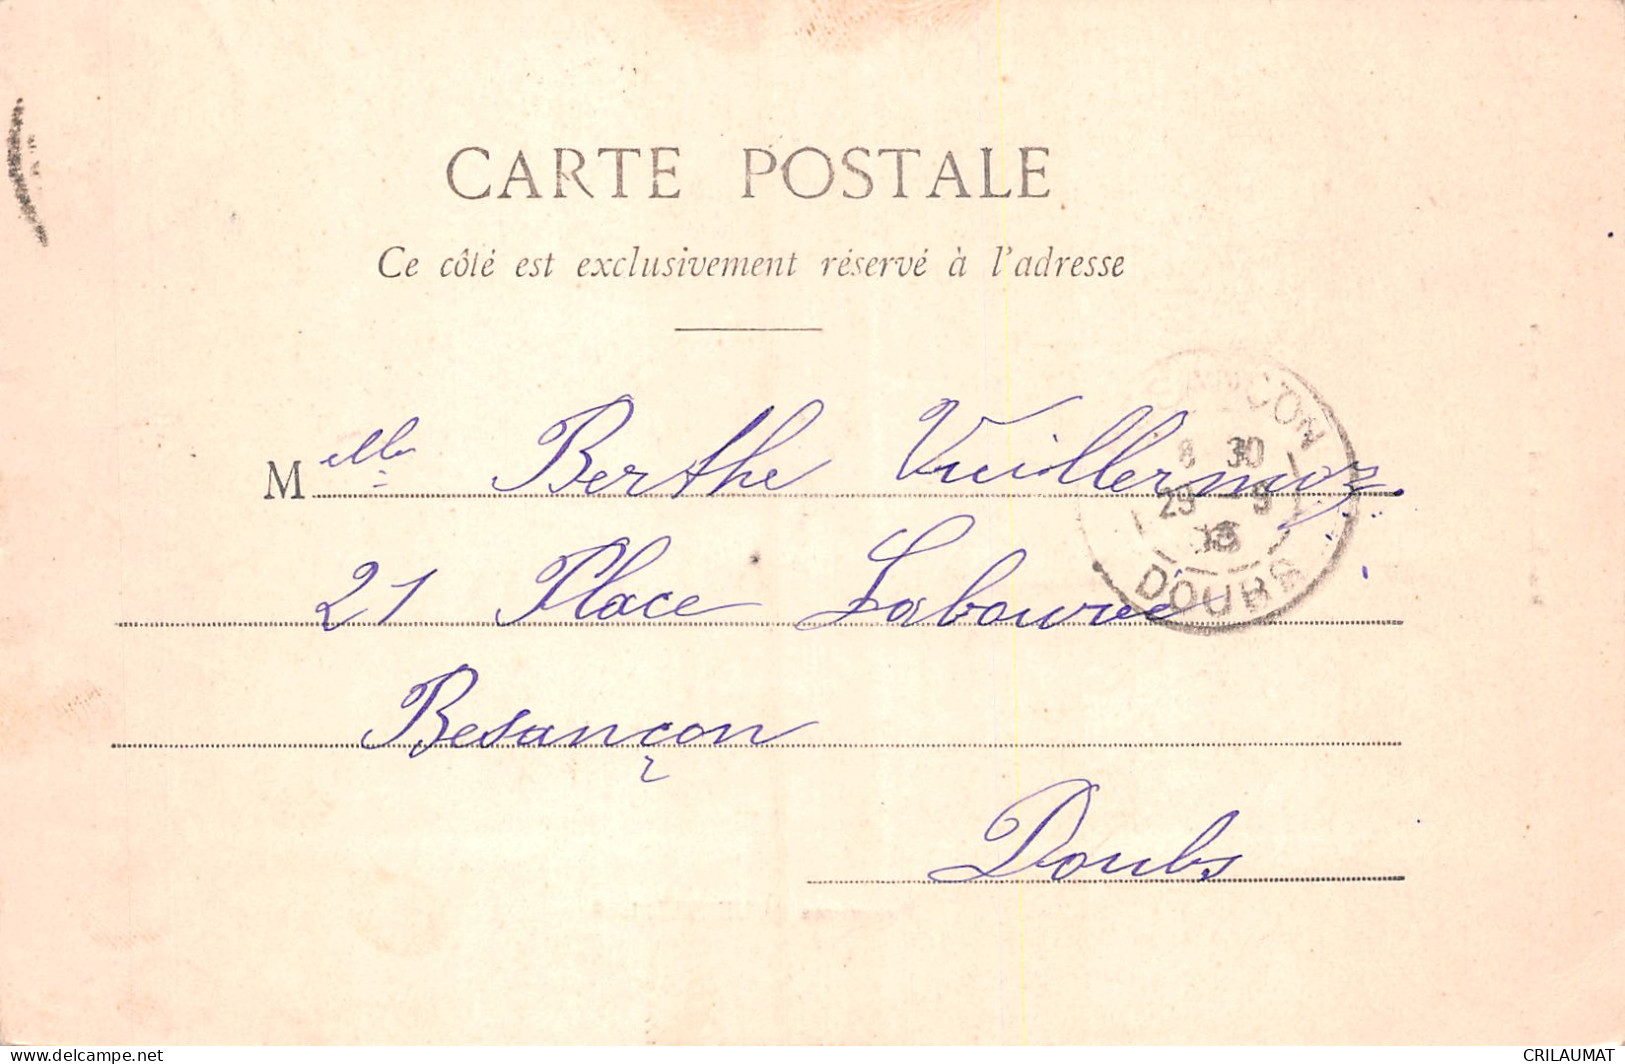 CARTE POSTALE
Ce côté est exclusivement réservé à l'adresse
Melle Berthe Vuillermoz.
21 Place Labourée
Besançon
Doubs
ANÇON
8 30
29 - 9
DOUBS
www.delcampe.net
CRILAUMAT